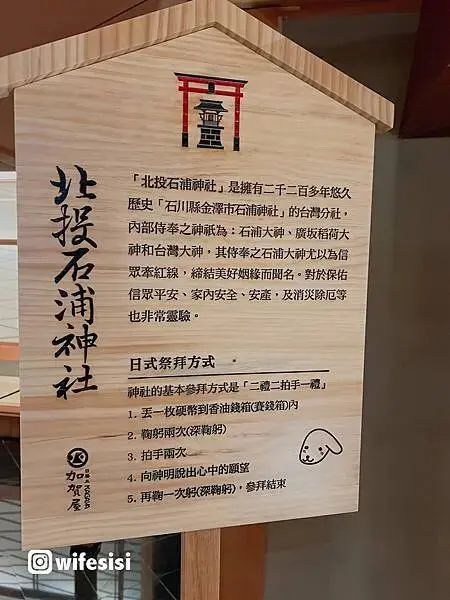 北投石浦神社
「北投石浦神社」是擁有二千二百多年悠久
歷史「石川縣金澤市石浦神社」的台灣分社，
內部侍奉之神祇為：石浦大神、廣坂稻荷大
神和台灣大神，其侍奉之石浦大神尤以為信
眾牽紅線，締結美好姻緣而聞名。對於保佑
信眾平安、家內安全、安產，及消災除厄等
也非常靈驗。
日式祭拜方式
神社的基本參拜方式是「二禮二拍手一禮」
1. 丟一枚硬幣到香油錢箱(賽錢箱)內
2. 鞠躬兩次(深鞠躬)
3. 拍手兩次
4. 向神明說出心中的願望
5. 再鞠一次躬(深鞠躬)，參拜結束
日勝生
加賀屋
KAGAYA
wifesisi